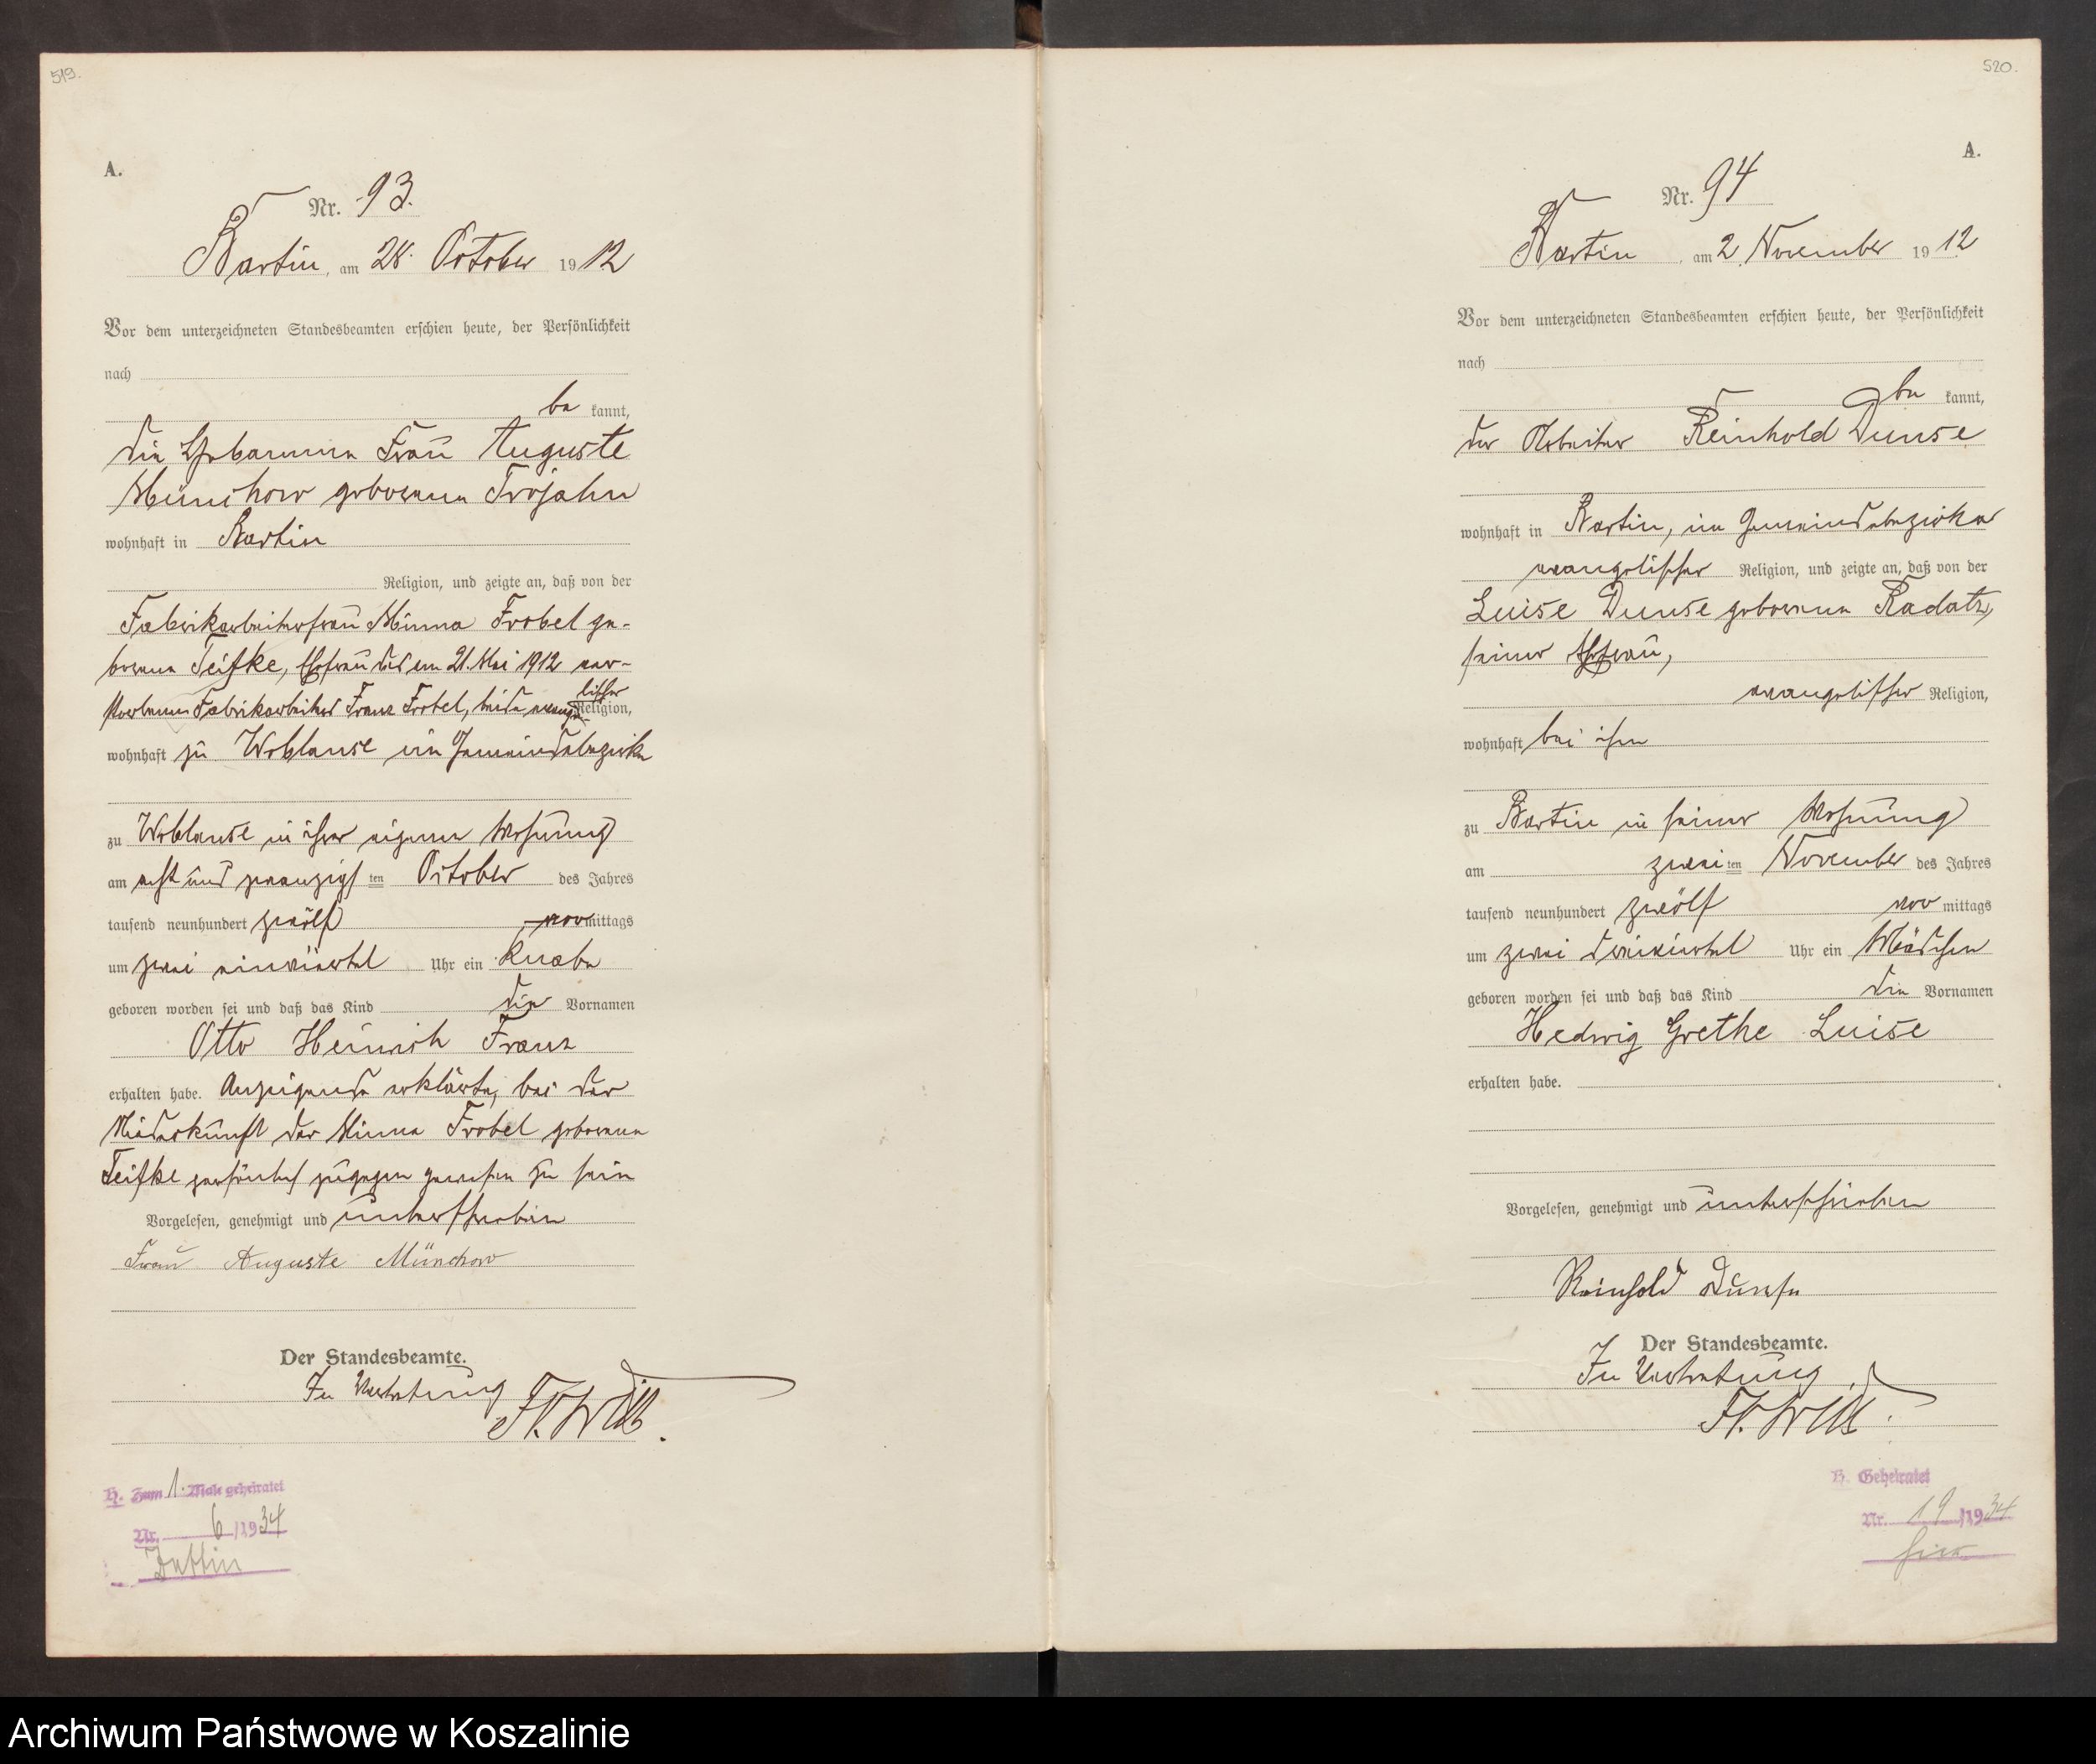 519.
A.
Nr. 93.
Bartin, am 28. October 1912
Vor dem unterzeichneten Standesbeamten erschien heute, der Persönlichkeit
nach
be kannt,
die Hebamme Frau Auguste
Münchow geborene Trojahn
wohnhaft in Bartin
Religion, und zeigte an, daß von der
Fabrikarbeiterfrau Minna Frobel ge-
borene Teifke, Ehefrau des am 21. Mai 1912 ver-
storbenen Fabrikarbeiters Franz Frobel, beide evange-
lischer Religion,
wohnhaft zu Woblanse im Gemeindebezirke
zu Woblanse in ihrer eigenen Wohnung
am acht und zwanzigsten October des Jahres
tausend neunhundert zwölf vormittags
um zwei einviertel Uhr ein Knabe
geboren worden sei und daß das Kind die Vornamen
Otto Heinrich Franz
erhalten habe. Anzeigende erklärte, bei der
Niederkunft der Minna Frobel geborene
Teifke persönlich zugegen gewesen zu sein
Vorgelesen, genehmigt und unterschrieben
Frau Auguste Münchow
Der Standesbeamte.
In Vertretung
H. Zum 1. Male geheiratet
Nr. 6/1934
520.
A.
Nr. 94
Bartin, am 2. November 1912
Vor dem unterzeichneten Standesbeamten erschien heute, der Persönlichkeit
nach
be kannt,
der Arbeiter Reinhold Dunse
wohnhaft in Bartin, im Gemeindebezirke
evangelischer Religion, und zeigte an, daß von der
Luise Dunse geborene Radatz,
seiner Ehefrau,
evangelischer Religion,
wohnhaft bei ihm
zu Bartin in seiner Wohnung
am zweiten November des Jahres
tausend neunhundert zwölf vor mittags
um zwei dreiviertel Uhr ein Mädchen
geboren worden sei und daß das Kind die Vornamen
Hedwig Grethe Luise
erhalten habe.
Vorgelesen, genehmigt und unterschrieben
Reinhold Dunse
Der Standesbeamte.
In Vertretung
H. Geheiratet
Nr. 19/1934
hier
Archiwum Państwowe w Koszalinie